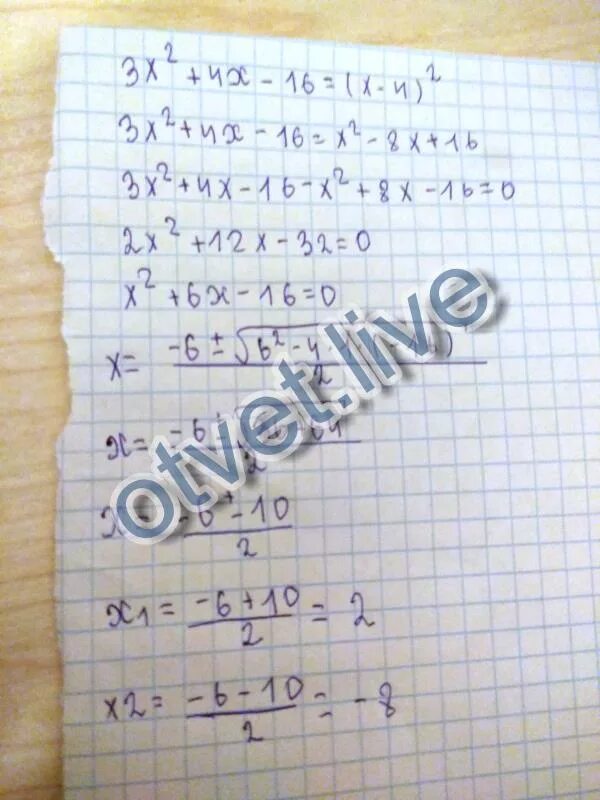 3x² + 4x - 16 = (x - 4)²
3x² + 4x - 16 = x² - 8x + 16
3x² + 4x - 16 - x² + 8x - 16 = 0
2x² + 12x - 32 = 0
x² + 6x - 16 = 0
x = -6 ± √6² - 4
2
x = -6
2
-6 ± 10
2
x1 = -6 + 10 = 2
2
x2 = -6 - 10 = -8
2
otvet.live